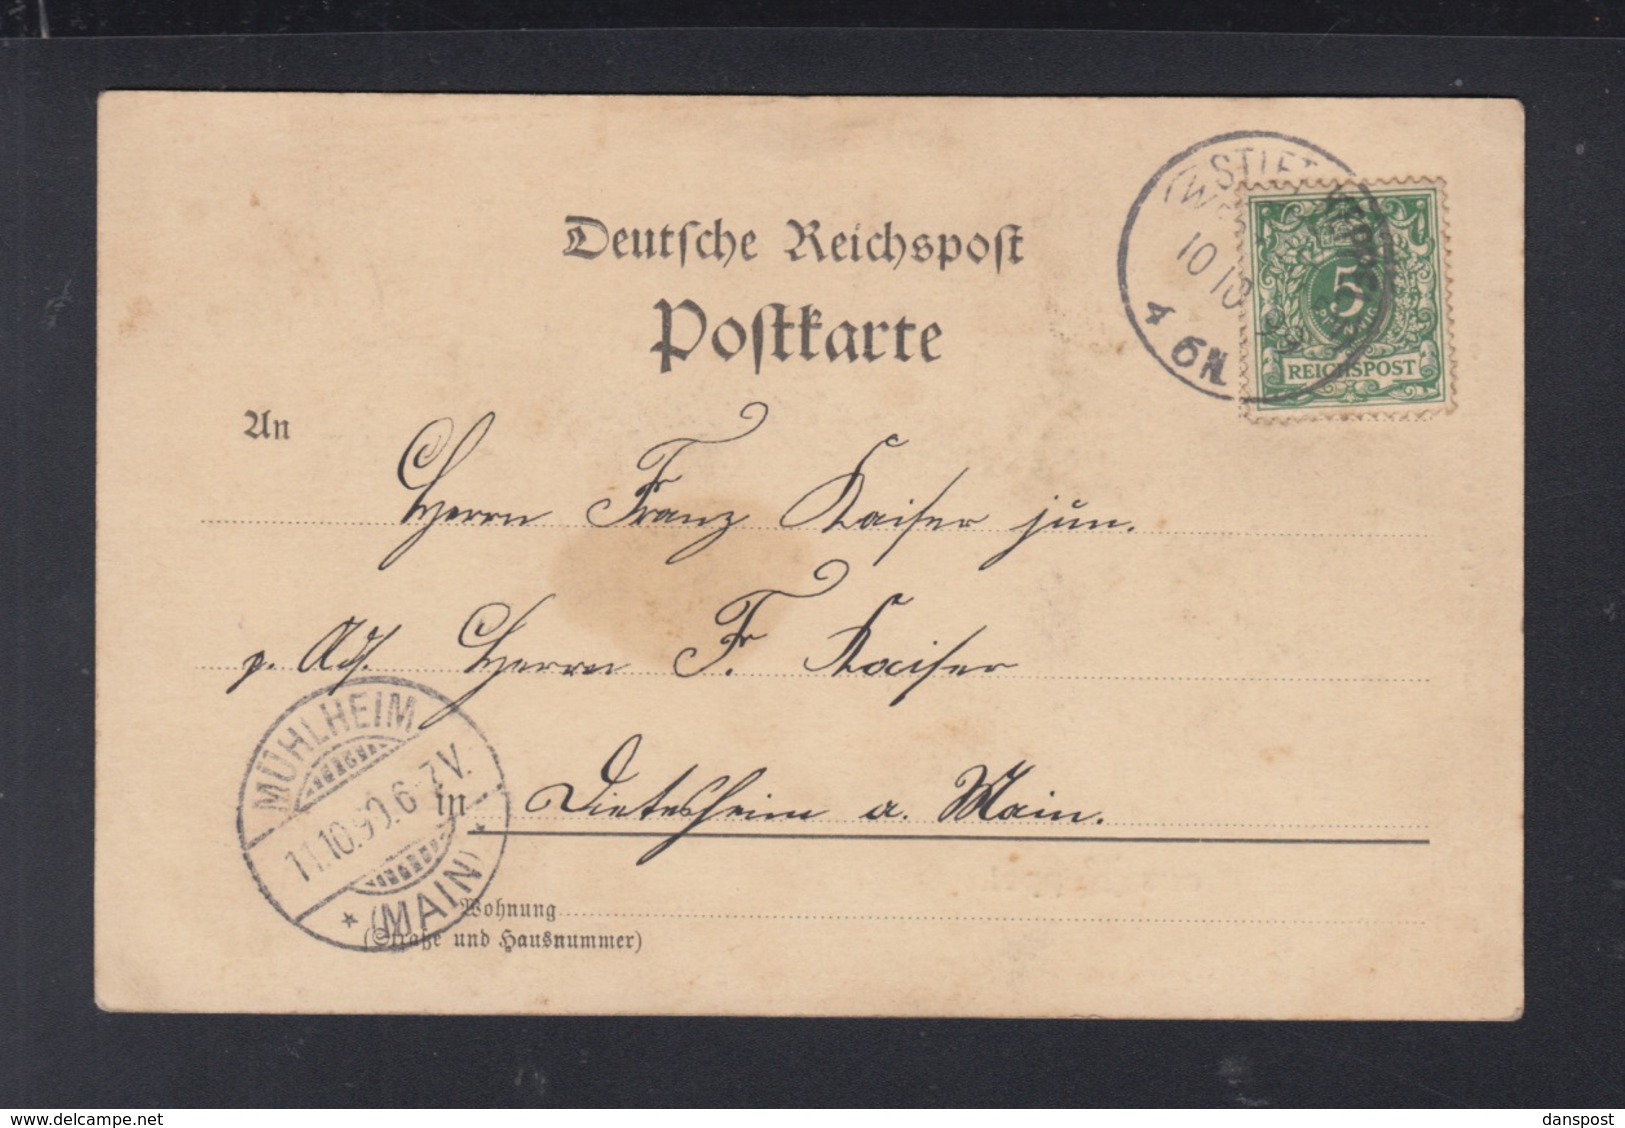 Deutsche Reichspost
Postkarte
STIFT
10 10
4 5 N.
5
PFENNIG
REICHSPOST
An
Herrn Franz Kaiser jun.
p. Ad. Herrn F. Kaiser
in Dietesheim a. Main.
MÜHLHEIM
11.10.99. 6-7 V.
* (MAIN) *
Wohnung
(Straße und Hausnummer)
delcampe.net
danspost